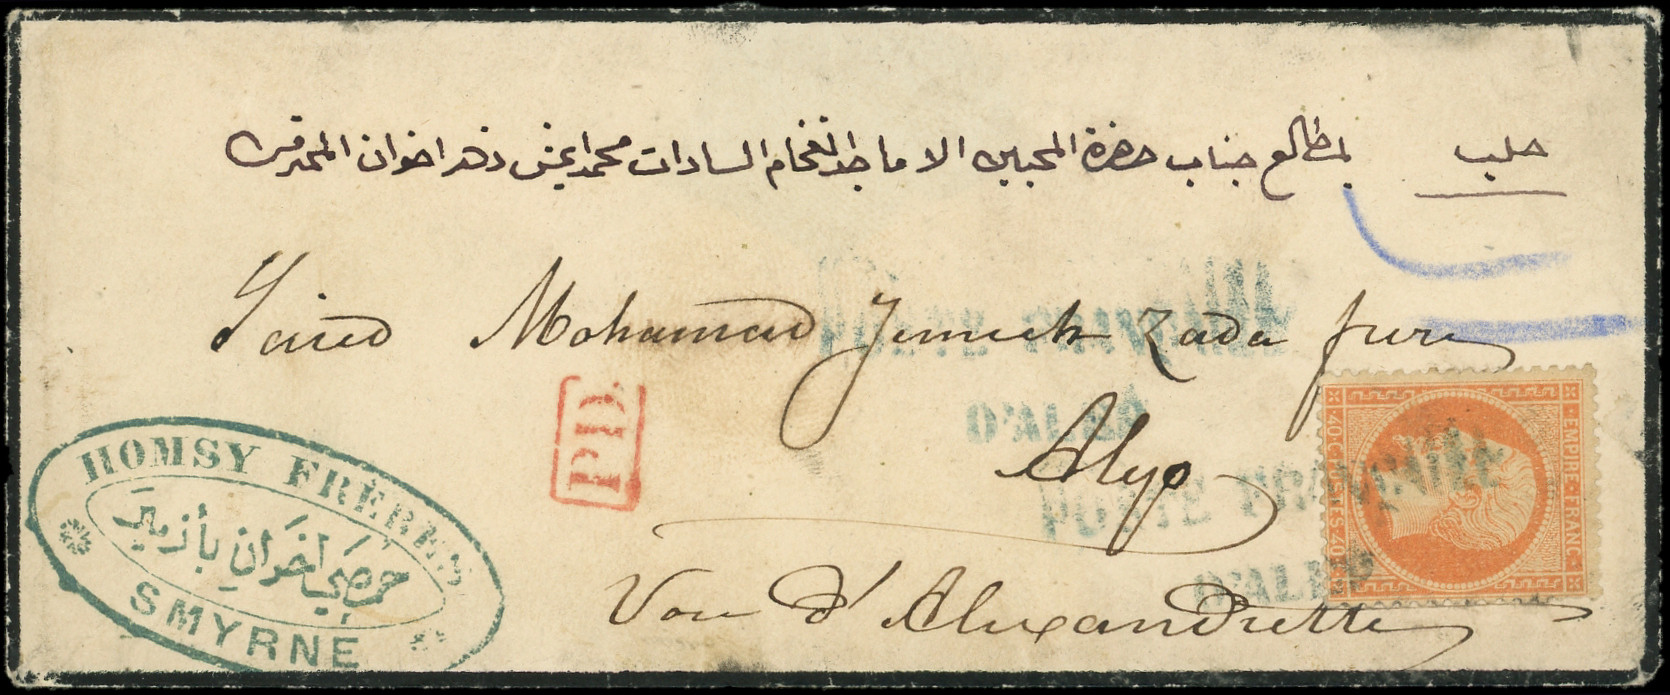 حلب
بمطالع جناب حضرة المحبين الاماجد الفخام السادات محمد زاده اخوان المحترمين
Saied Mohamad Zada
Alep
Voie d'Alexandrette
PD
HOMSY FRÈRES
حمصي اخوان بأزمير
SMYRNE
POSTE FRANÇAISE
D'ALEP
POSTE FRANÇAISE
D'ALEP
EMPIRE FRANC
40 C POSTES 40